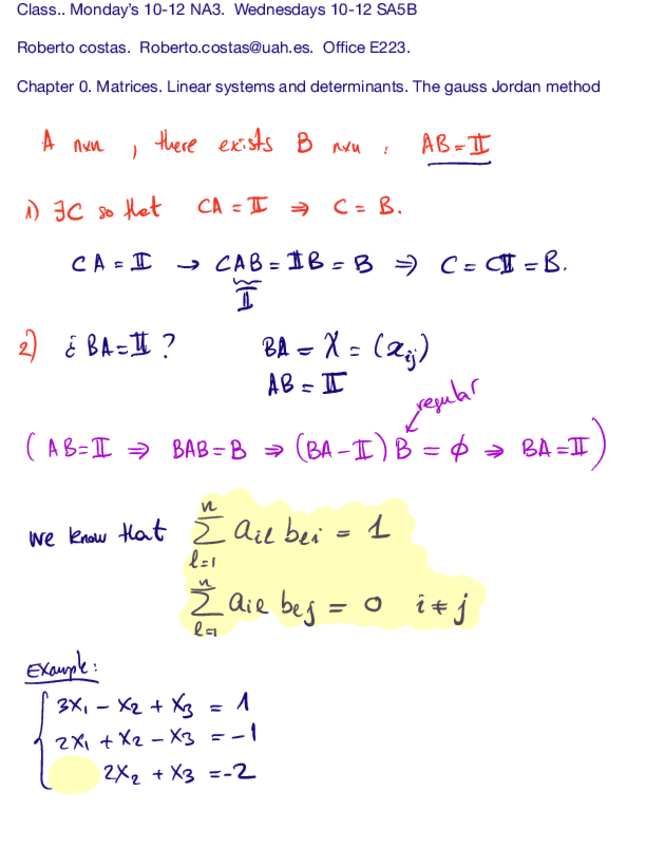 Class.. Monday's 10-12 NA3. Wednesdays 10-12 SA5B
Roberto costas. Roberto.costas@uah.es. Office E223.
Chapter 0. Matrices. Linear systems and determinants. The gauss Jordan method
A nxn , there exists B nxn : AB = 𝕀
1) ∃C so that CA = 𝕀 ⇒ C = B.
CA = 𝕀 → CAB = 𝕀B = B ⇒ C = C𝕀 = B.
𝕀
2) ¿ BA = 𝕀 ? BA = X = (x_ij)
AB = 𝕀
regular
( AB = 𝕀 ⇒ BAB = B ⇒ (BA - 𝕀) B = ϕ ⇒ BA = 𝕀 )
we know that ∑_{l=1}^{n} a_il b_li = 1
∑_{l=1}^{n} a_il b_lj = 0 i ≠ j
Example:
3x₁ - x₂ + x₃ = 1
2x₁ + x₂ - x₃ = -1
2x₂ + x₃ = -2